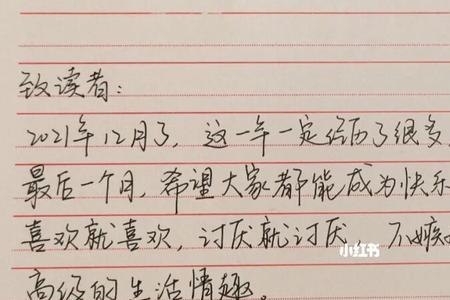 致读者：
2021年12月了，这一年一定经历了很多，
最后一个月，希望大家都能成为快乐
喜欢就喜欢，讨厌就讨厌 不嫉
小红书
高级的生活情趣。